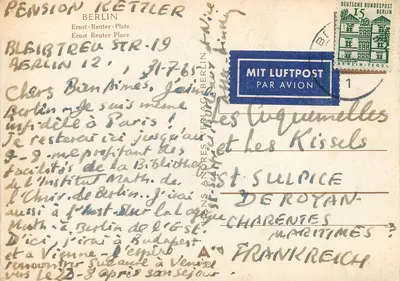 PENSION KETTLER
BERLIN
Ernst-Reuter-Platz
Ernst Reuter Place
BLEIBTREU STR-19
BERLIN 12. 31-7-65
Chers Bien Aimés, j'aime
Berlin - je suis même
infidèle à Paris!
Je resterai ici jusqu'au
9-9- me profitant des
facilités de la Bibliothèque
de l'Institut Math. de
l'Univ. de Berlin. J'irai
aussi à l'Inst. sur la Logique
Math. à Berlin de l'Est.
D'ici j'irai à Budapest
et à Vienne - j'espère
rencontrer Suzanne à Venise
vers le 22-3 après son séjour
DEUTSCHE BUNDESPOST
BERLIN
15
BERLIN/TEGEL
MIT LUFTPOST
PAR AVION
Les Coquenelles
et Les Kissels
ST. SULPICE
DE ROYAN-
CHARENTES
MARITIMES
FRANKREICH